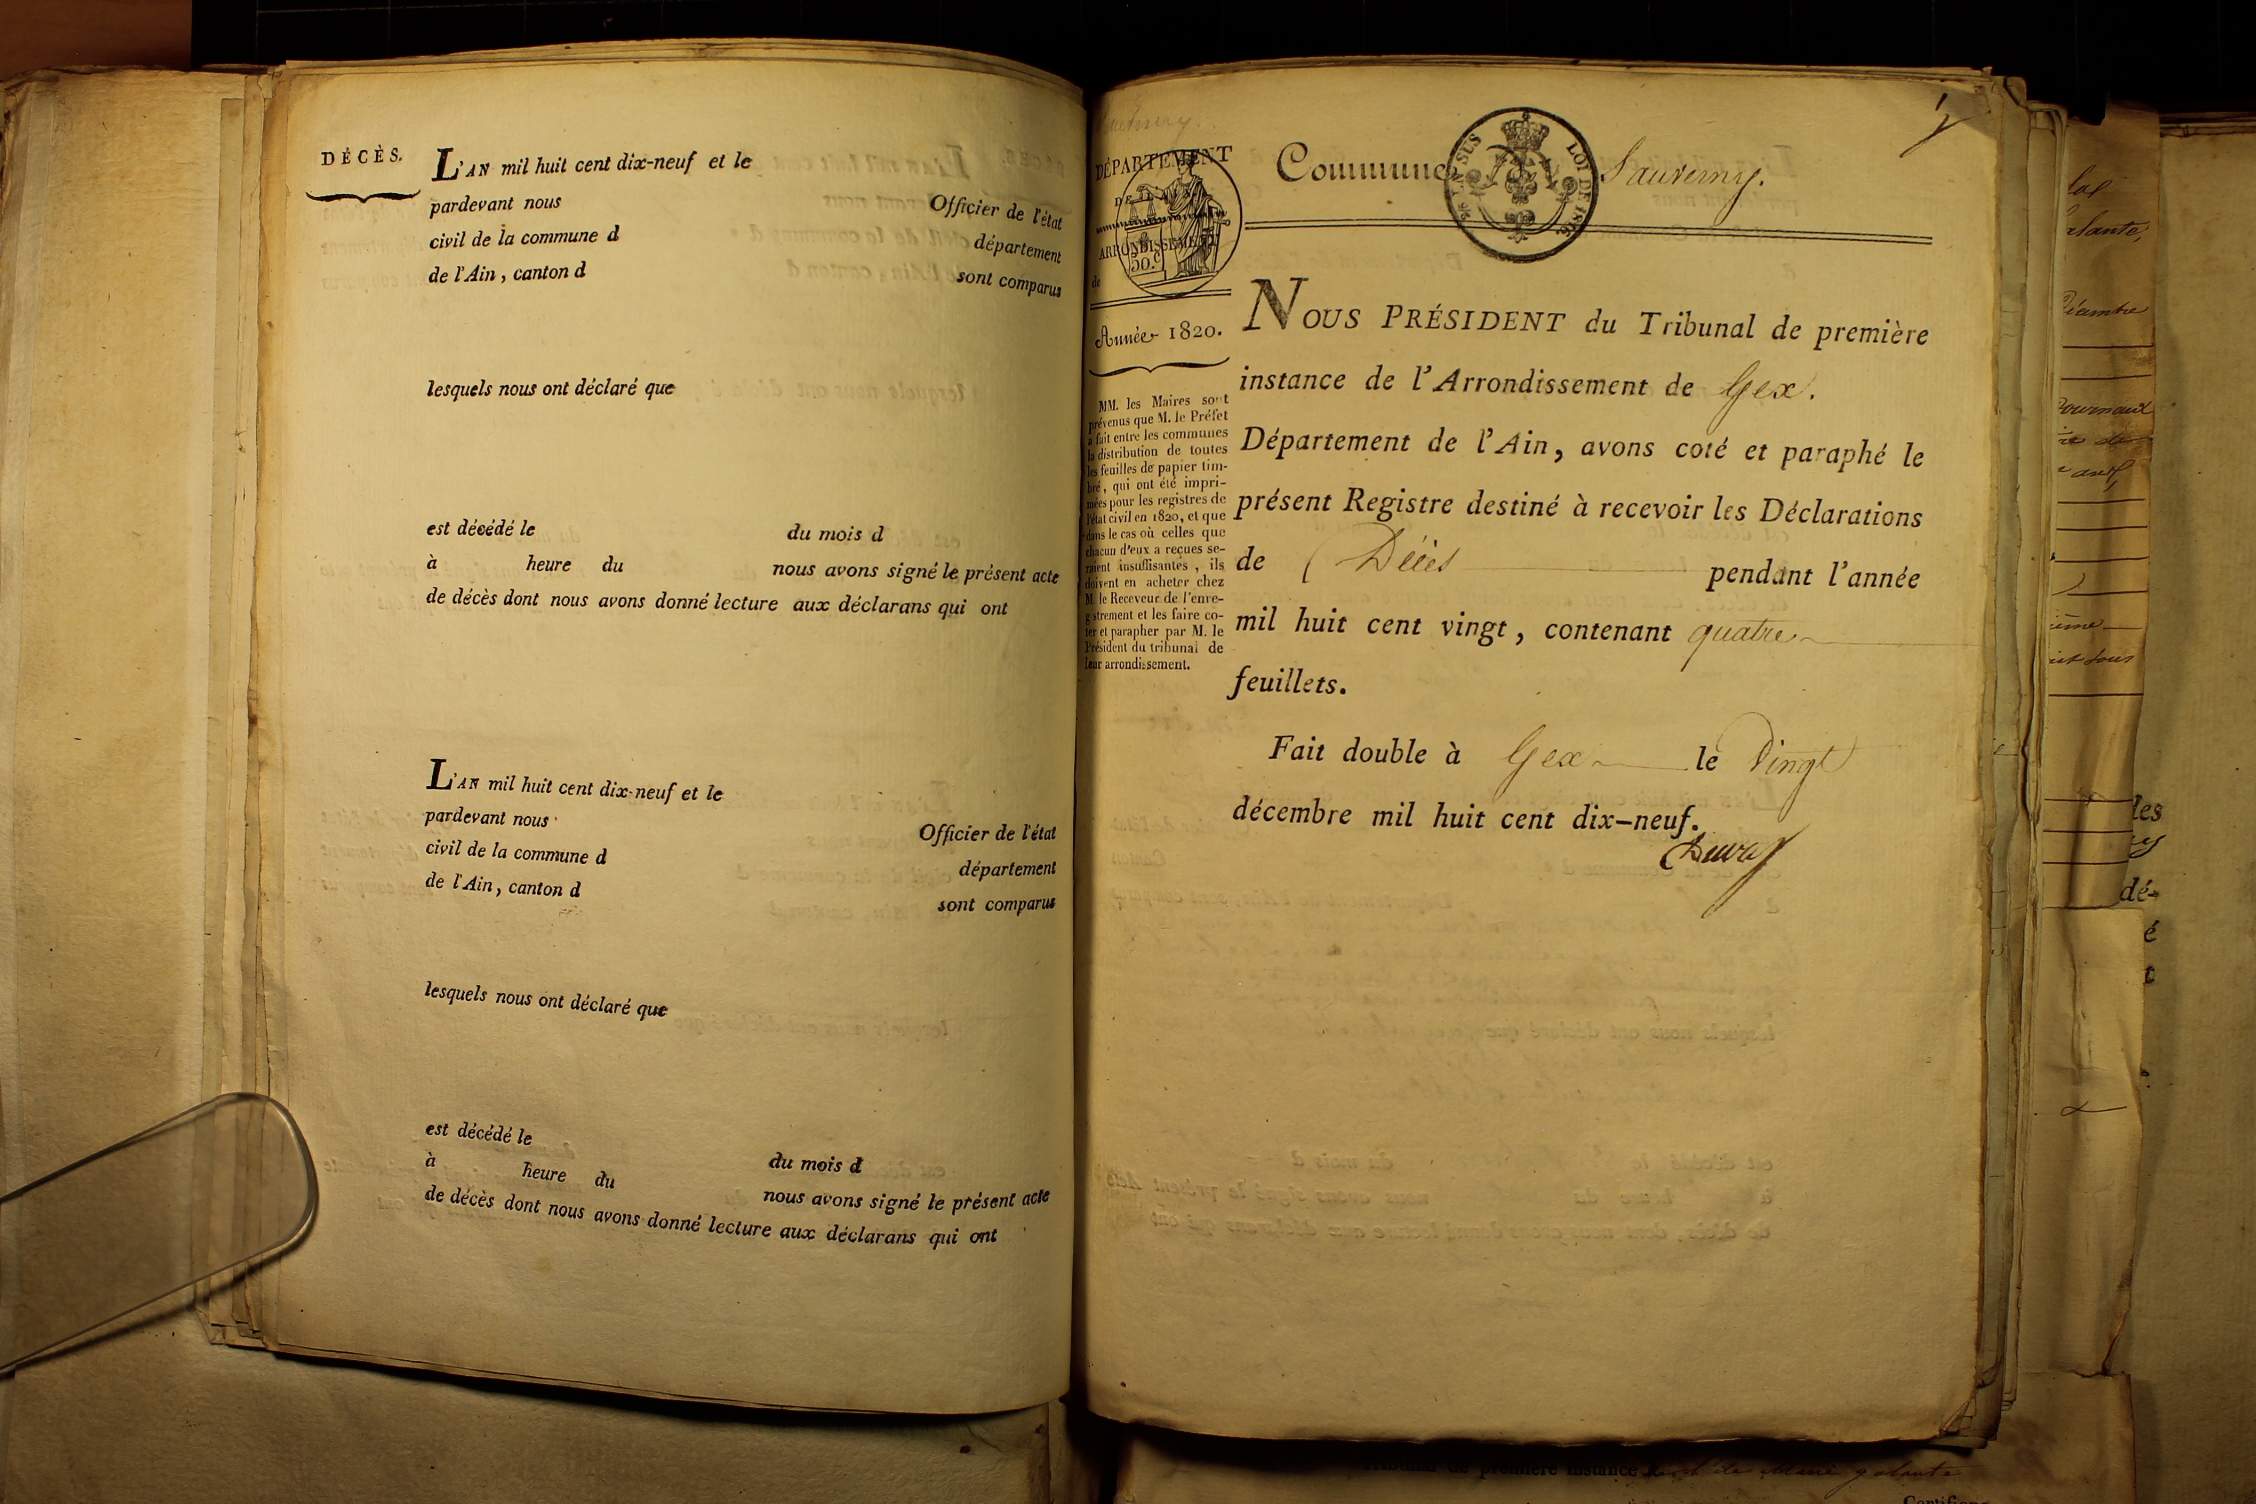 DÉCÈS.
L'AN mil huit cent dix-neuf et le
pardevant nous Officier de l'état
civil de la commune d département
de l'Ain, canton d sont comparus
lesquels nous ont déclaré que
est décédé le du mois d
à heure du nous avons signé le présent acte
de décès dont nous avons donné lecture aux déclarans qui ont
L'AN mil huit cent dix-neuf et le
pardevant nous Officier de l'état
civil de la commune d département
de l'Ain, canton d sont comparus
lesquels nous ont déclaré que
est décédé le du mois d
à heure du nous avons signé le présent acte
de décès dont nous avons donné lecture aux déclarans qui ont
DÉPARTEMENT
DE L'AIN
ARRONDISSEMENT
de
50.C
Année 1820.
MM. les Maires sont
prévenus que M. le Préfet
a fait entre les communes
la distribution de toutes
les feuilles de papier tim-
bré, qui ont été impri-
mées pour les registres de
l'état civil en 1820, et que
dans le cas où celles que
chacun d'eux a reçues se-
raient insuffisantes, ils
doivent en acheter chez
M. le Receveur de l'enre-
gistrement et les faire co-
ter et parapher par M. le
Président du tribunal de
leur arrondissement.
Commune de Sauverny.
EN SUS LOI DE 1816.
NOUS PRÉSIDENT du Tribunal de première
instance de l'Arrondissement de Gex.
Département de l'Ain, avons coté et paraphé le
présent Registre destiné à recevoir les Déclarations
de Décès pendant l'année
mil huit cent vingt, contenant quatre
feuillets.
Fait double à Gex le Vingt
décembre mil huit cent dix-neuf.